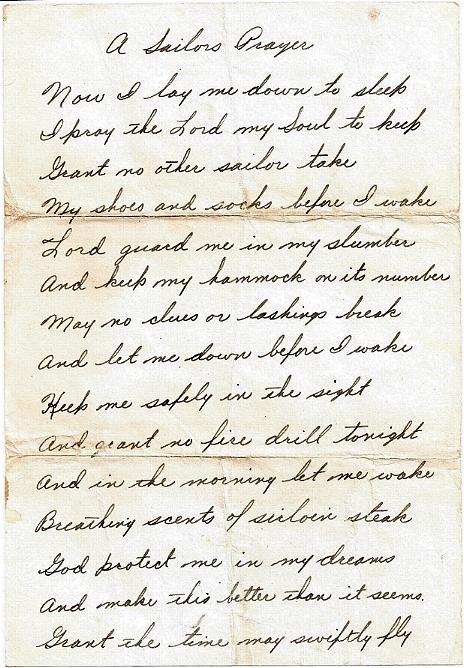 A Sailors Prayer
Now I lay me down to sleep
I pray the Lord my Soul to keep
Grant no other sailor take
My shoes and socks before I wake
Lord guard me in my slumber
And keep my hammock on its number
May no clues or lashings break
And let me down before I wake
Keep me safely in the sight
And grant no fire drill tonight
And in the morning let me wake
Breathing scents of sirloin steak
God protect me in my dreams
And make this better than it seems.
Grant the time may swiftly fly